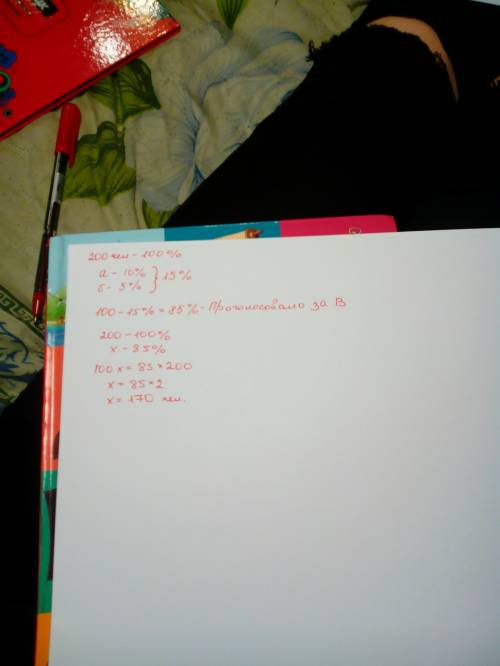 200 чел - 100%
а - 10% } 15%
б - 5%
100 - 15% = 85% - Проголосовало за В
200 - 100%
х - 85%
100 х = 85 * 200
х = 85 * 2
х = 170 чел.